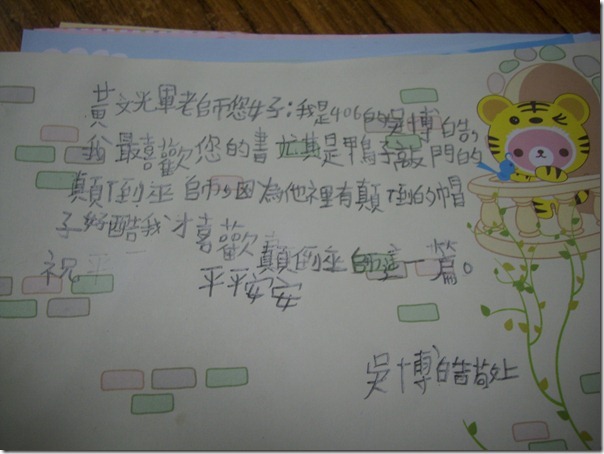 黃文光軍老師您好:我是406的吳博皓,
我最喜歡您的書尤其是鴨子敲門的
顛倒巫師,因為他裡有顛倒的帽
子好酷我才喜歡顛倒巫師這一篇。
祝平
平平安安
吳博皓敬上